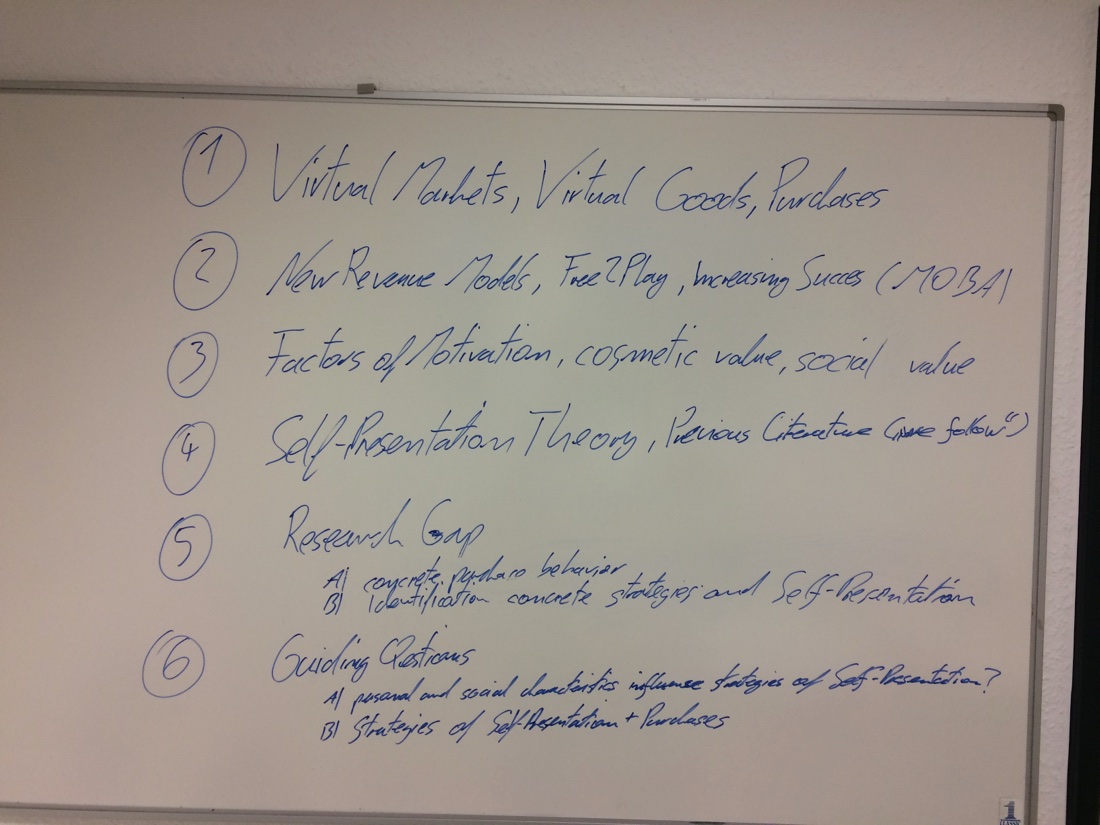 1 Virtual Markets, Virtual Goods, Purchases
2 New Revenue Models, Free2Play, Increasing Succes (MOBA)
3 Factors of Motivation, cosmetic value, social value
4 Self-Presentation Theory, Previous Literature follow")
5 Research Gap
A) concrete purchase behavior
B) Identification concrete strategies and Self-Presentation
6 Guiding Qestions
A) personal and social characteristics influense strategies of Self-Presentation?
B) Strategies of Self-Presentation + Purchases